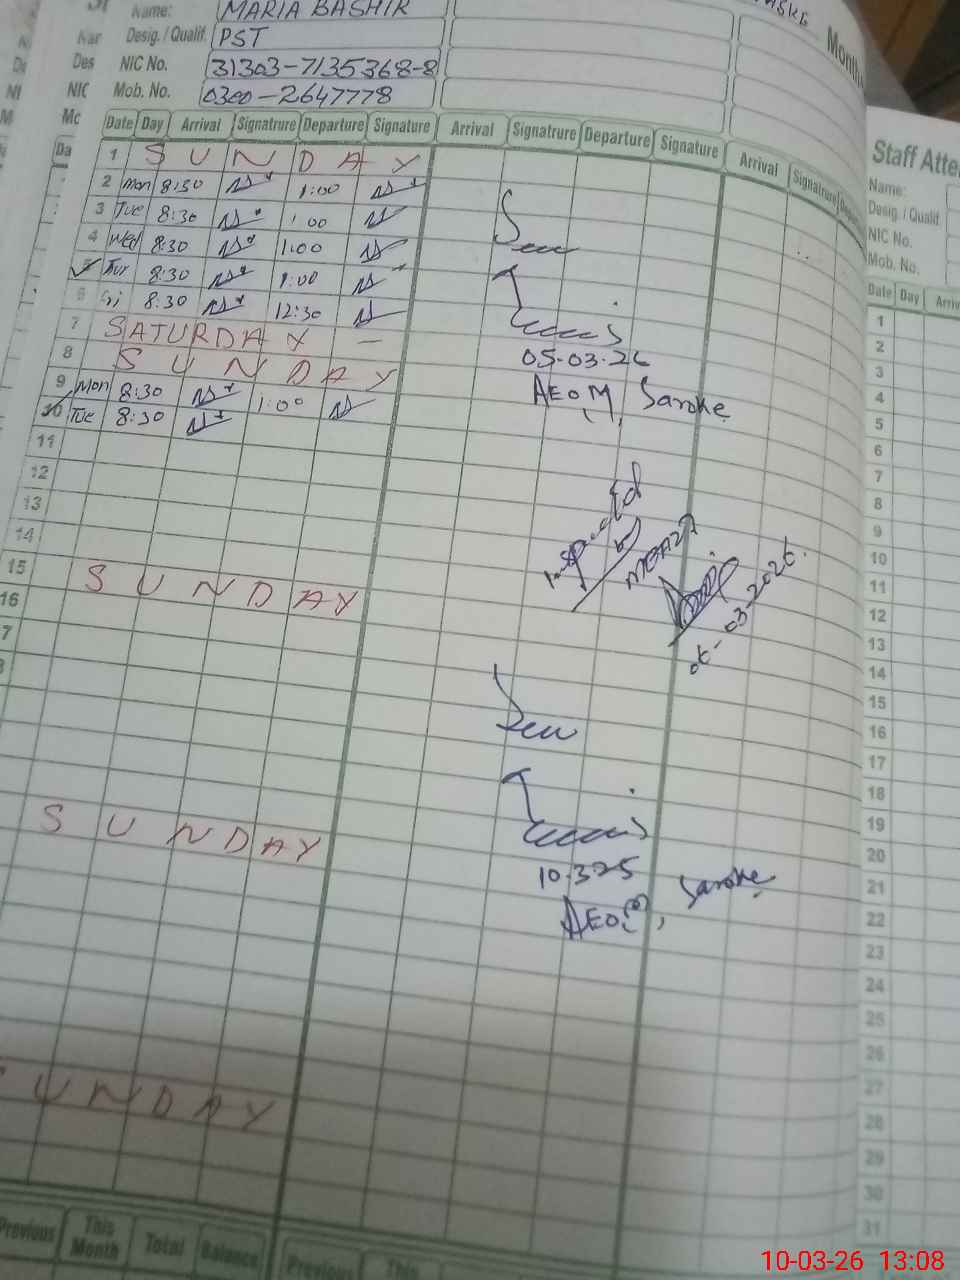 Name: MARIA BASHIR
Desig. / Qualif. PST
NIC No. 31303-7135368-8
Mob. No. 0300-2647778
Month
Date Day Arrival Signatrure Departure Signature Arrival Signatrure Departure Signature Arrival Signatrure
1 SUNDAY
2 Mon 8:30 1:00
3 Tue 8:30 1:00
4 Wed 8:30 1:00
5 Tur 8:30 1:00
6 Fri 8:30 12:30
7 SATURDAY –
8 SUNDAY
9 Mon 8:30 1:00
10 Tue 8:30
11
12
13
14
15 SUNDAY
16
7
8
SUNDAY
UNDAY
Seen
05-03-26
AEO(M), Saroke
Inspected
by
06-03-2026.
Seen
10.3.25
AEO(M), Saroke
Previous This Month Total Balance Previous This
Staff Atte
Name:
Desig. / Qualif.
NIC No.
Mob. No.
Date Day Arriv
1
2
3
4
5
6
7
8
9
10
11
12
13
14
15
16
17
18
19
20
21
22
23
24
25
26
27
28
29
30
31
10-03-26 13:08